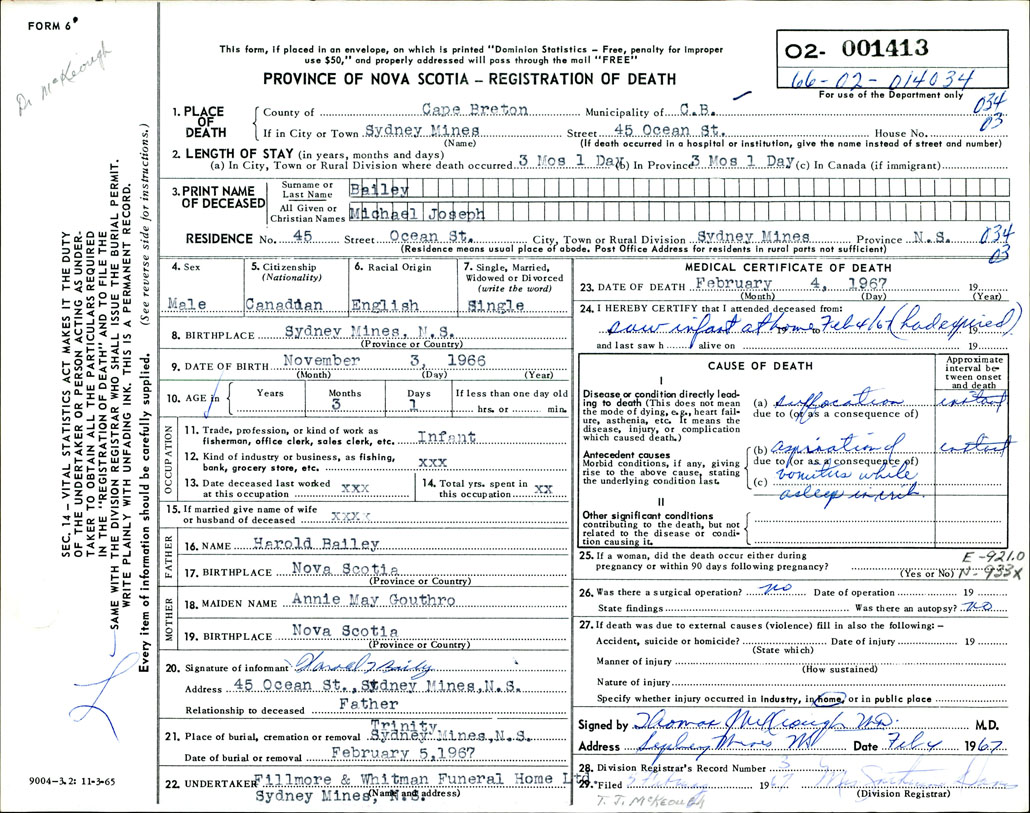 FORM 6
Dr McKeough
This form, if placed in an envelope, on which is printed "Dominion Statistics – Free, penalty for improper
use $50," and properly addressed will pass through the mail "FREE"
PROVINCE OF NOVA SCOTIA – REGISTRATION OF DEATH
O2- 001413
66-02-014034
For use of the Department only
034
03
1. PLACE OF DEATH
County of Cape Breton Municipality of C.B.
If in City or Town Sydney Mines Street 45 Ocean St. House No.
(Name) (If death occurred in a hospital or institution, give the name instead of street and number)
2. LENGTH OF STAY (in years, months and days)
(a) In City, Town or Rural Division where death occurred 3 Mos 1 Day (b) In Province 3 Mos 1 Day (c) In Canada (if immigrant)
3. PRINT NAME OF DECEASED
Surname or Last Name Bailey
All Given or Christian Names Michael Joseph
RESIDENCE No. 45 Street Ocean St. City, Town or Rural Division Sydney Mines Province N.S. 034
(Residence means usual place of abode. Post Office Address for residents in rural parts not sufficient) 03
4. Sex
Male
5. Citizenship
(Nationality)
Canadian
6. Racial Origin
English
7. Single, Married,
Widowed or Divorced
(write the word)
Single
8. BIRTHPLACE Sydney Mines, N.S.
(Province or Country)
9. DATE OF BIRTH November 3, 1966
(Month) (Day) (Year)
10. AGE in
Years Months Days If less than one day old
3 1 hrs. or min.
OCCUPATION
11. Trade, profession, or kind of work as
fisherman, office clerk, sales clerk, etc. Infant
12. Kind of industry or business, as fishing,
bank, grocery store, etc. xxx
13. Date deceased last worked
at this occupation xxx
14. Total yrs. spent in
this occupation xx
15. If married give name of wife
or husband of deceased xxxx
FATHER
16. NAME Harold Bailey
17. BIRTHPLACE Nova Scotia
(Province or Country)
MOTHER
18. MAIDEN NAME Annie May Gouthro
19. BIRTHPLACE Nova Scotia
(Province or Country)
20. Signature of informant Harold J Bailey
Address 45 Ocean St., Sydney Mines, N.S.
Relationship to deceased Father
21. Place of burial, cremation or removal Trinity
Sydney Mines, N.S.
Date of burial or removal February 5, 1967
22. UNDERTAKER Fillmore & Whitman Funeral Home Ltd.
Sydney Mines, N.S. (Name and address)
MEDICAL CERTIFICATE OF DEATH
23. DATE OF DEATH February 4, 1967 19
(Month) (Day) (Year)
24. I HEREBY CERTIFY that I attended deceased from:
saw infant at home to Feb 4/67 (had expired) 19
and last saw h alive on 19
CAUSE OF DEATH
Approximate
interval be-
tween onset
and death
I
Disease or condition directly lead-
ing to death (This does not mean
the mode of dying, e.g., heart fail-
ure, asthenia, etc. It means the
disease, injury, or complication
which caused death.)
(a) suffocation instant
due to (or as a consequence of)
Antecedent causes
Morbid conditions, if any, giving
rise to the above cause, stating
the underlying condition last.
(b) aspiration of instant
due to (or as a consequence of)
(c) vomitus while
asleep in crib.
II
Other significant conditions
contributing to the death, but not
related to the disease or condi-
tion causing it.
25. If a woman, did the death occur either during
pregnancy or within 90 days following pregnancy?
(Yes or No)
E-921.0
N-933X
26. Was there a surgical operation? no Date of operation 19
State findings Was there an autopsy? no
27. If death was due to external causes (violence) fill in also the following: –
Accident, suicide or homicide? Date of injury 19
(State which)
Manner of injury
(How sustained)
Nature of injury
Specify whether injury occurred in Industry, in home, or in public place
Signed by Thomas McKeough M.D. M.D.
Address Sydney Mines NS Date Feb 4 1967
28. Division Registrar's Record Number 3
29. Filed 1967
(Division Registrar)
T. J. McKEOUGH
SEC. 14 – VITAL STATISTICS ACT MAKES IT THE DUTY
OF THE UNDERTAKER OR PERSON ACTING AS UNDER-
TAKER TO OBTAIN ALL THE PARTICULARS REQUIRED
IN THE "REGISTRATION OF DEATH" AND TO FILE THE
SAME WITH THE DIVISION REGISTRAR WHO SHALL ISSUE THE BURIAL PERMIT.
WRITE PLAINLY WITH UNFADING INK. THIS IS A PERMANENT RECORD.
Every item of information should be carefully supplied. (See reverse side for instructions.)
9004-3.2: 11-3-65